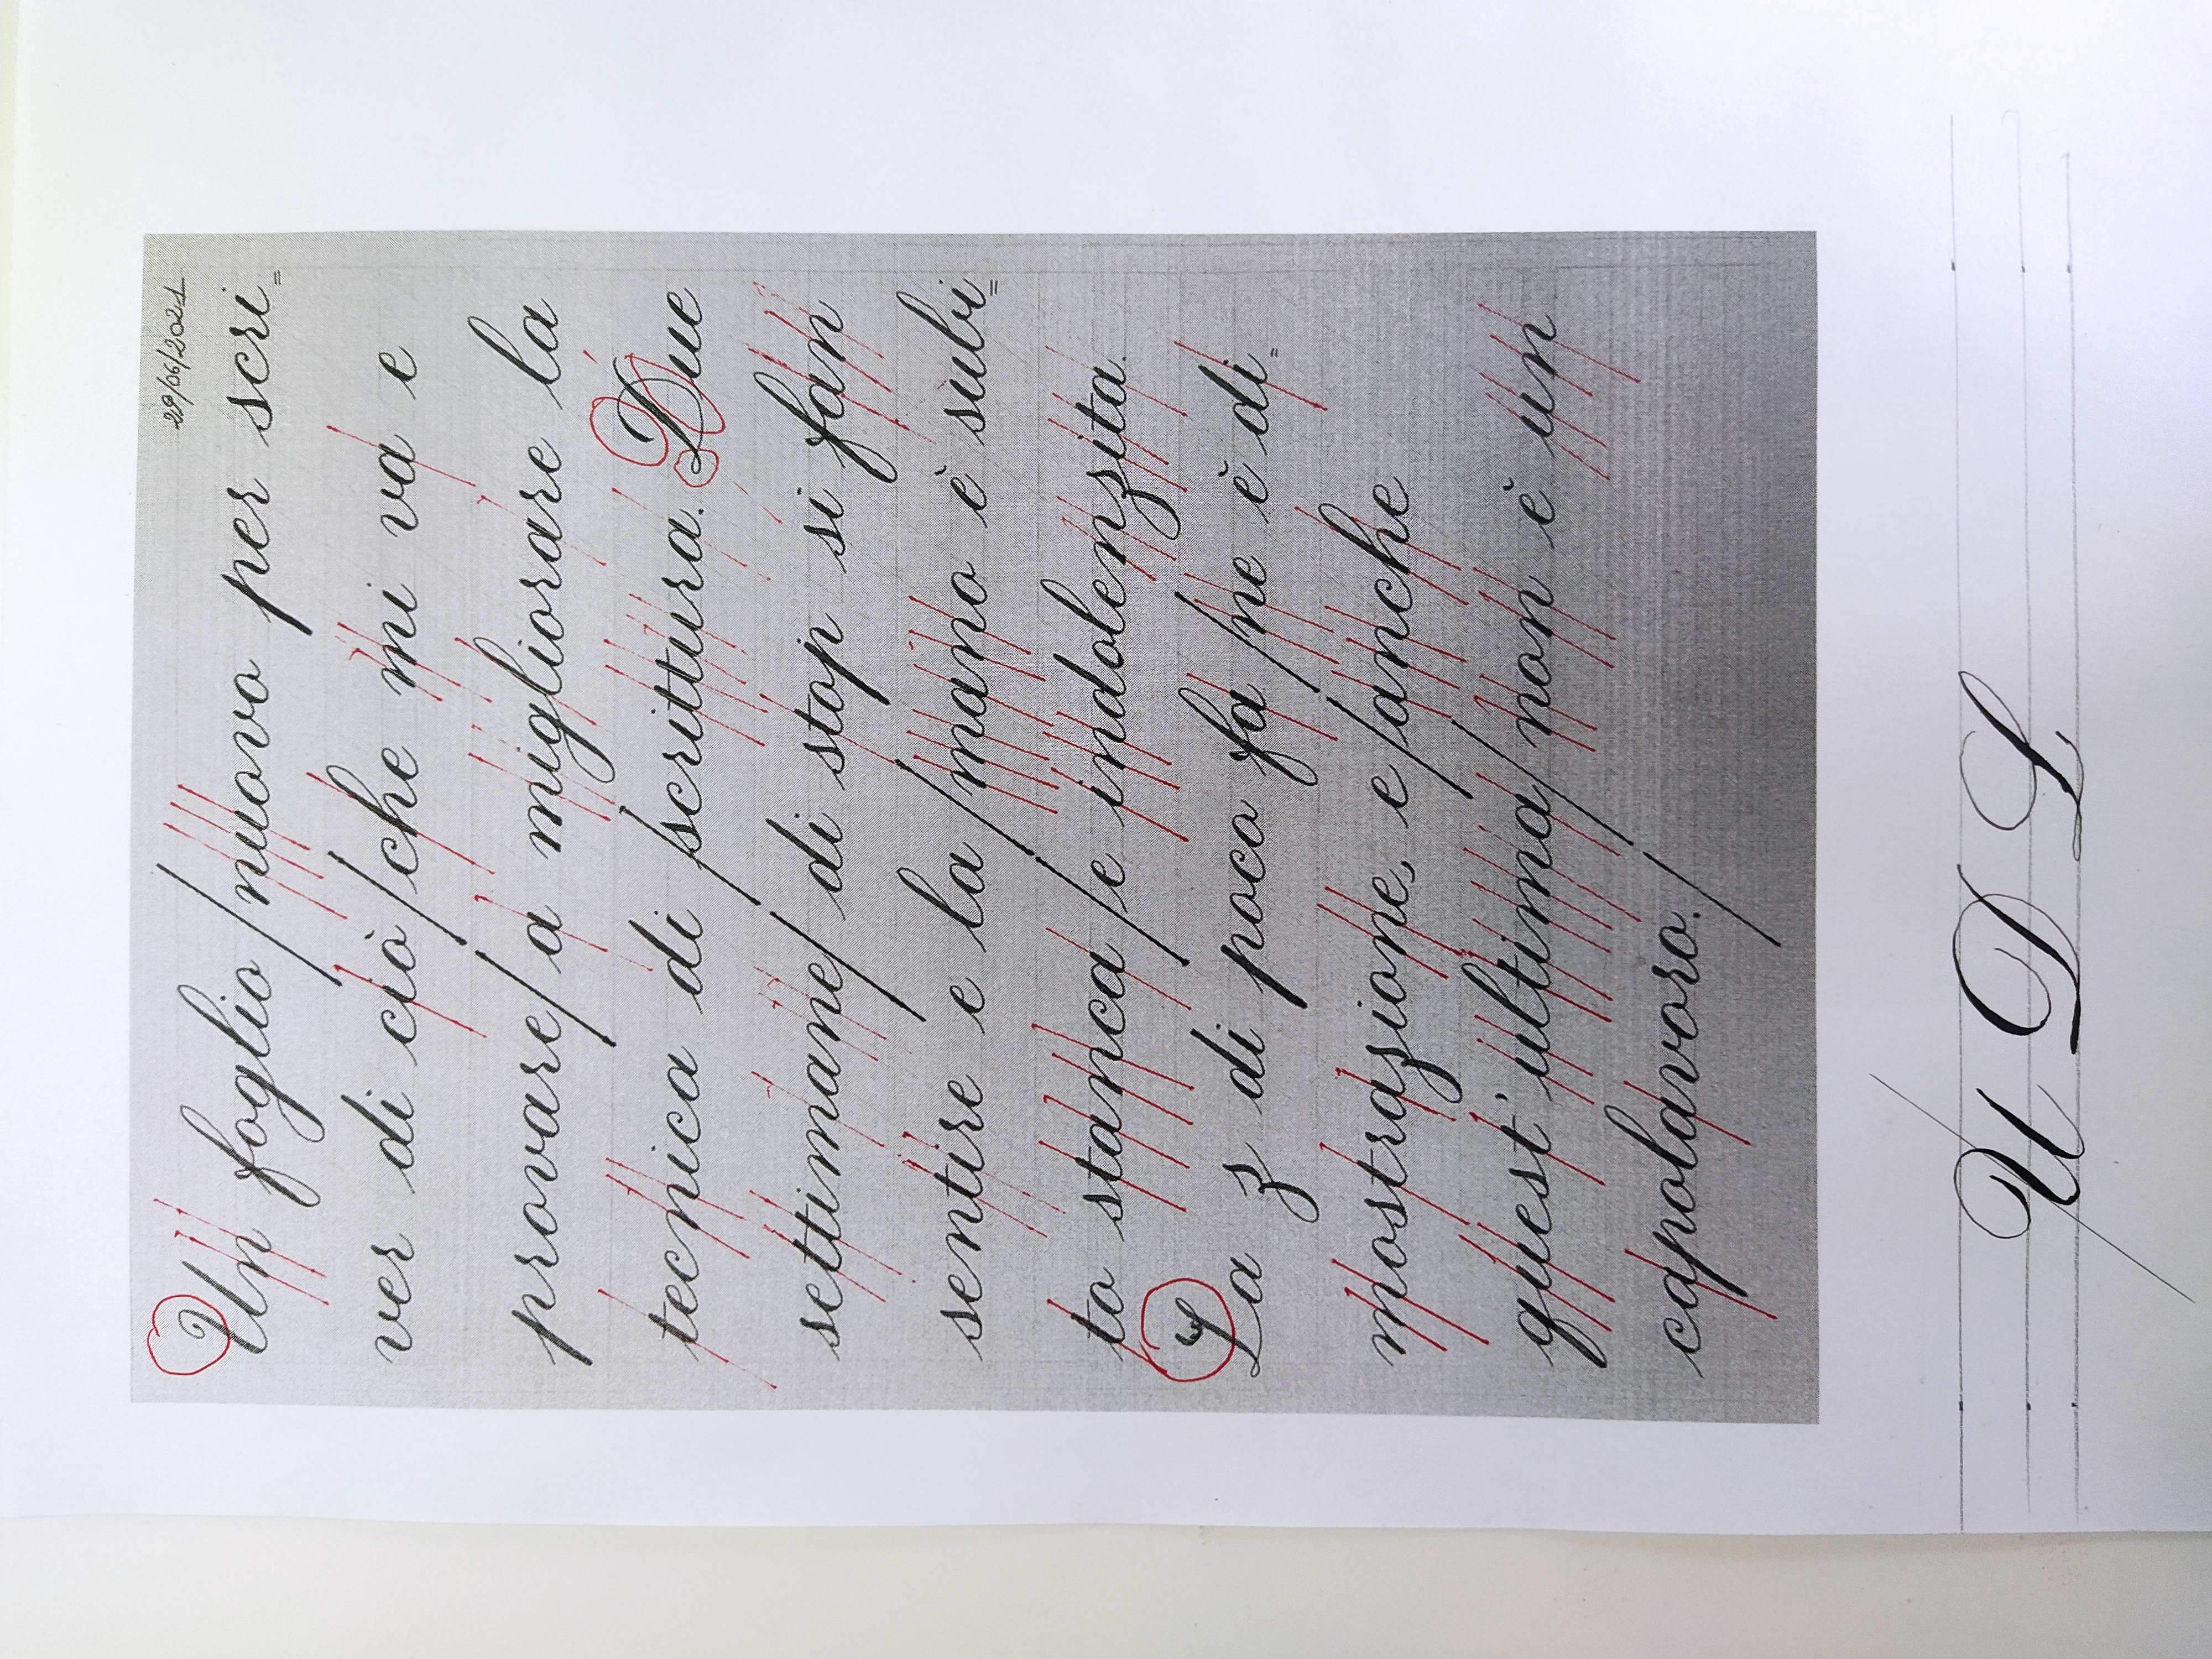 29/06/2021
Un foglio/nuovo per scri=
ver di ciò/che mi va e
provare/a migliorare la
tecnica di/scrittura. Due
settimane/di stop si fan
sentire e la/mano è subi=
to stanca/e indolenzita.
La z di poco fa/ne è di=
mostrazione, e/anche
quest'ultima/non è un
capolavoro./
U D L